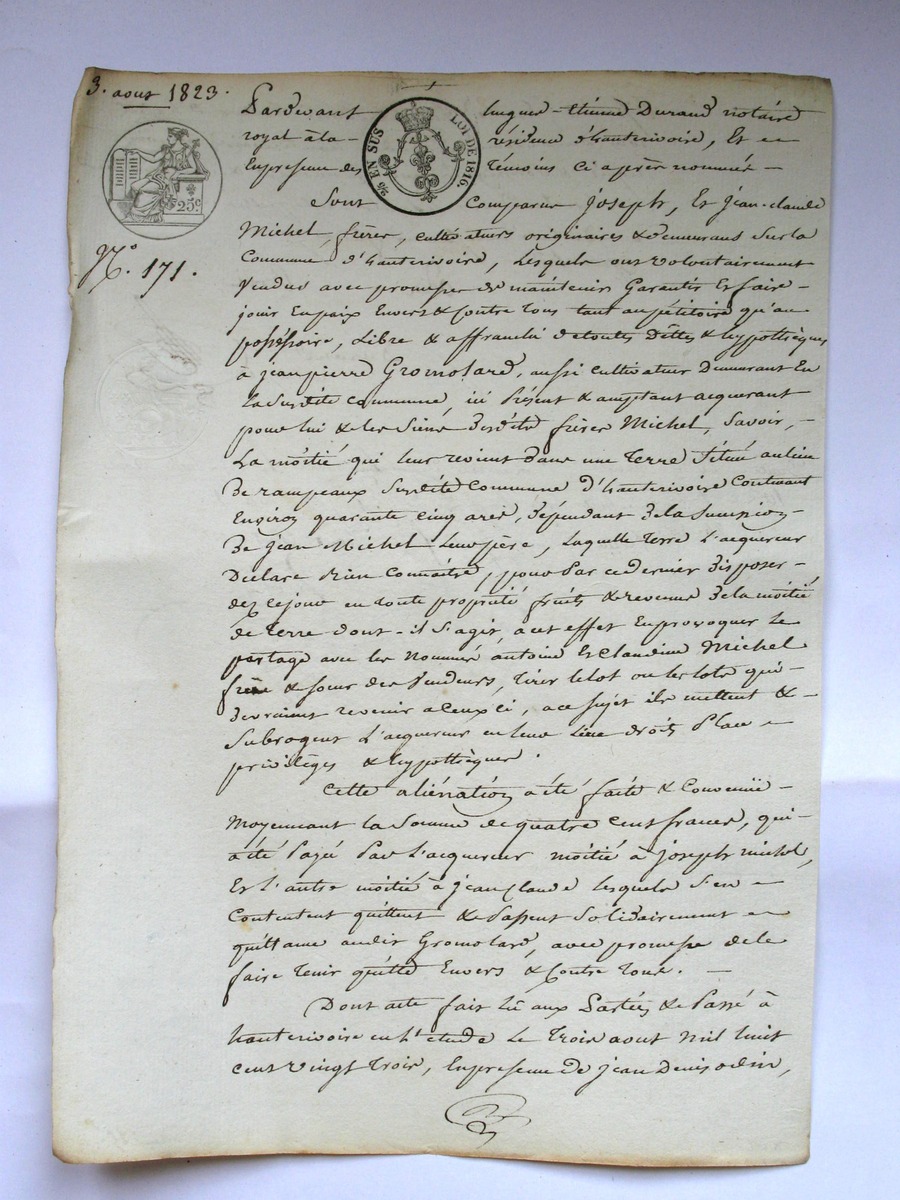 3. aout 1823.
Pardevant hugues-Etienne Durand notaire
royal à la résidence d'hauterivoire, Et en
Enpresence des Témoins ci après nommés
% EN SUS LOI DE 1816.
25c
Sont Comparus Joseph, Et jean-claude
Michel, frères, cultivateurs originaires & demeurans Sur la
N.o 171.
Commune d'hauterivoire, Lesquels ont volontairement
Vendus avec promesse de maintenir Garantir Et faire
jouir En paix Envers & Contre Tous tant au pétitoire qu'au
posséssoire, Libre & affranchi detoutes Dêttes & hypothèques
à jean pierre Gromolard, aussi cultivateur Demeurant En
La Susdite commune, ici Présent & acceptant acquerant
pour lui & les Siens desdits frères Michel, Savoir,
La moitié qui leur revient dans une Terre Située au lieu
De rampeaux Susdite Commune D'hauterivoire Contenant
Environ quarante cinq ares, dépendant de la Succession
De jean Michel Leur père, Laquelle Terre L'acquereur
Déclare bien Connaitre, pour Par ce dernier disposer
dez cejour en toute propriété fruits & revenus de la moitié
de Terre dont-il S'agit, acet effet Enprovoquer le
partage avec les Nommés antoine Et Claudine Michel
frère & soeur des Vendeurs, tirer le lot ou les lots qui
devraient revenir aceux ci, ace sujet ils mettent &
Subrogent L'acquereur en leur Lieu droits Place
privilèges & hypothèques.
Cette aliénation a été faite & Convenüe
Moyennant la Somme de quatre cent francs, qui
a été Payée Par L'acquereur moitié à joseph michel,
Et l'autre moitié à jean claude lesquels S'en
Contentent quittent & Passent Solidairement
quittance audit Gromolard, avec promesse de le
faire Tenir quitte Envers & Contre Tous.
Dont acte fait Lû aux Parties & Passé à
hauterivoire en l'etude Le Trois aout Mil huit
cent vingt trois, Enpresence de jean Denis odin,